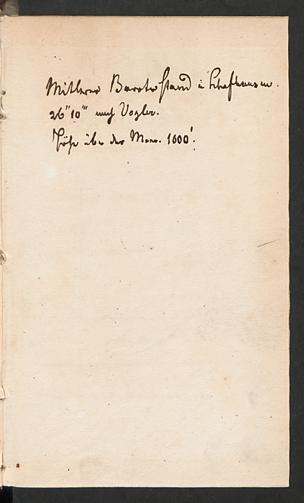 Mittlerer Baroto Stand i Schafhausen.
26" 10'" nach Vogler.
Höhe über das Meer. 1600'.